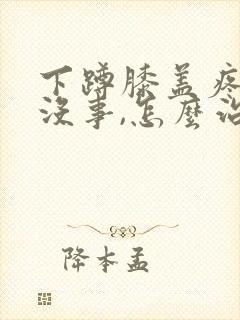 下蹲膝盖疼
没事,怎麽治
降本孟